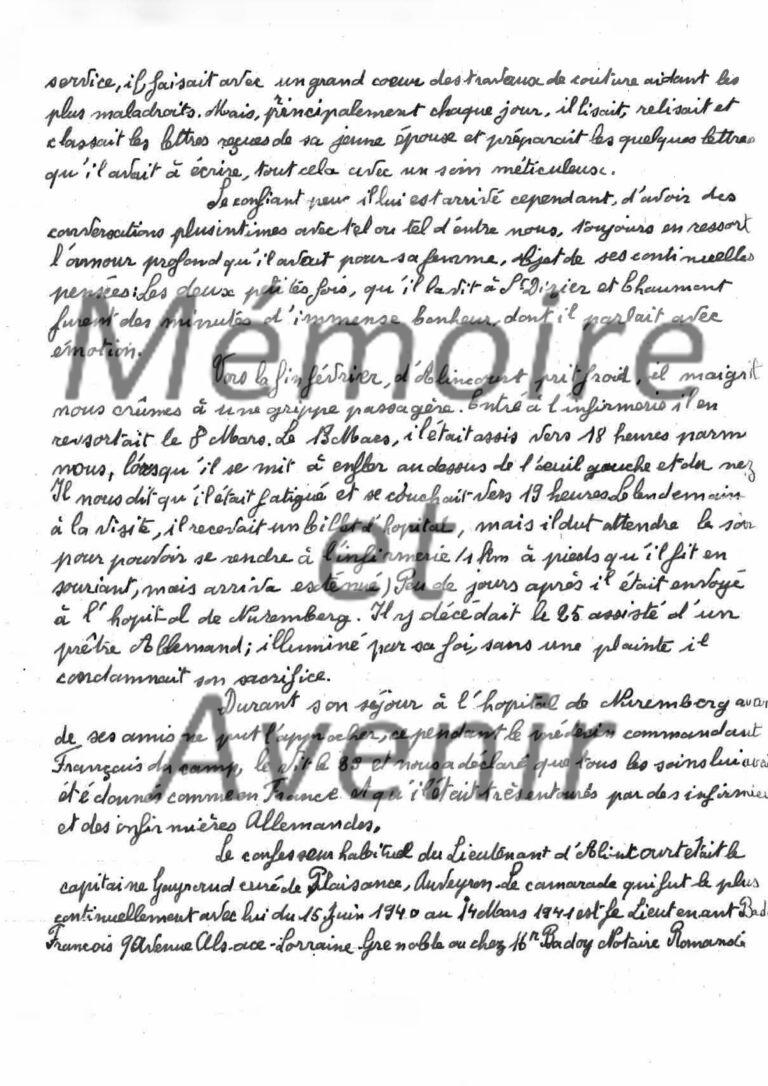 service, il faisait avec un grand coeur des travaux de couture aidant les
plus maladroits. Mais, principalement chaque jour, il lisait, relisait et
classait les lettres reçues de sa jeune épouse et préparait les quelques lettres
qu'il avait à écrire, tout cela avec un soin méticuleux.
Se confiant peu il lui est arrivé cependant, d'avoir des
conversations plus intimes avec tel ou tel d'entre nous, toujours en ressort
l'amour profond qu'il avait pour sa femme, objet de ses continuelles
pensées: Les deux petites fois, qu'il la vit à St Dizier et Chaumont
furent des minutes d'immense bonheur, dont il parlait avec
émotion.
Vers la fin février, d'Alincourt prit froid, il maigrit
nous crûmes à une grippe passagère. Entré à l'infirmerie il en
ressortait le 8 Mars. Le 13 Mars, il était assis vers 18 heures parm
nous, lorsqu'il se mit à enfler au dessus de l'oeuil gauche et du nez
Il nous dit qu'il était fatigué et se couchait vers 19 heures. Le lendemain
à la visite, il recevait un billet d'hopital, mais il dut attendre le soir
pour pouvoir se rendre à l'infirmerie (1 km à pieds qu'il fit en
souriant, mais arriva exténué) Peu de jours après il était envoyé
à l'hopital de Nuremberg. Il y décédait le 25 assisté d'un
prêtre Allemand; illuminé par sa foi, sans une plainte il
son sacrifice.
Durant son séjour à l'hopital de Nuremberg
de ses amis ne put l'approcher, cependant le médecin commandant
Français du camp, le vit le et nous a déclaré que tous les soins lui
été donnés comme en France et qu'il était très entourés par des infirmie
et des infirmières Allemandes.
Le confesseur habituel du Lieutenant d'Alincourt était le
capitaine curé de Plaisance, Auveyron. Le camarade qui fut le plus
continuellement avec lui du 15 Juin 1940 au 14 Mars 1941 est le Lieutenant
François 9 Avenue Alsace-Lorraine Grenoble ou chez Mr Badoy Notaire
Mémoire
et
Avenir